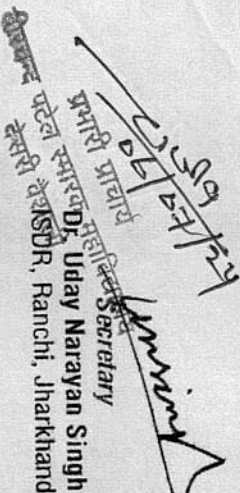 06/07/24
प्रभारी प्राचार्य
पटेल स्मारक महाविद्यालय
देसरी वैशाली
Secretary
Dr. Uday Narayan Singh
ISDR, Ranchi, Jharkhand